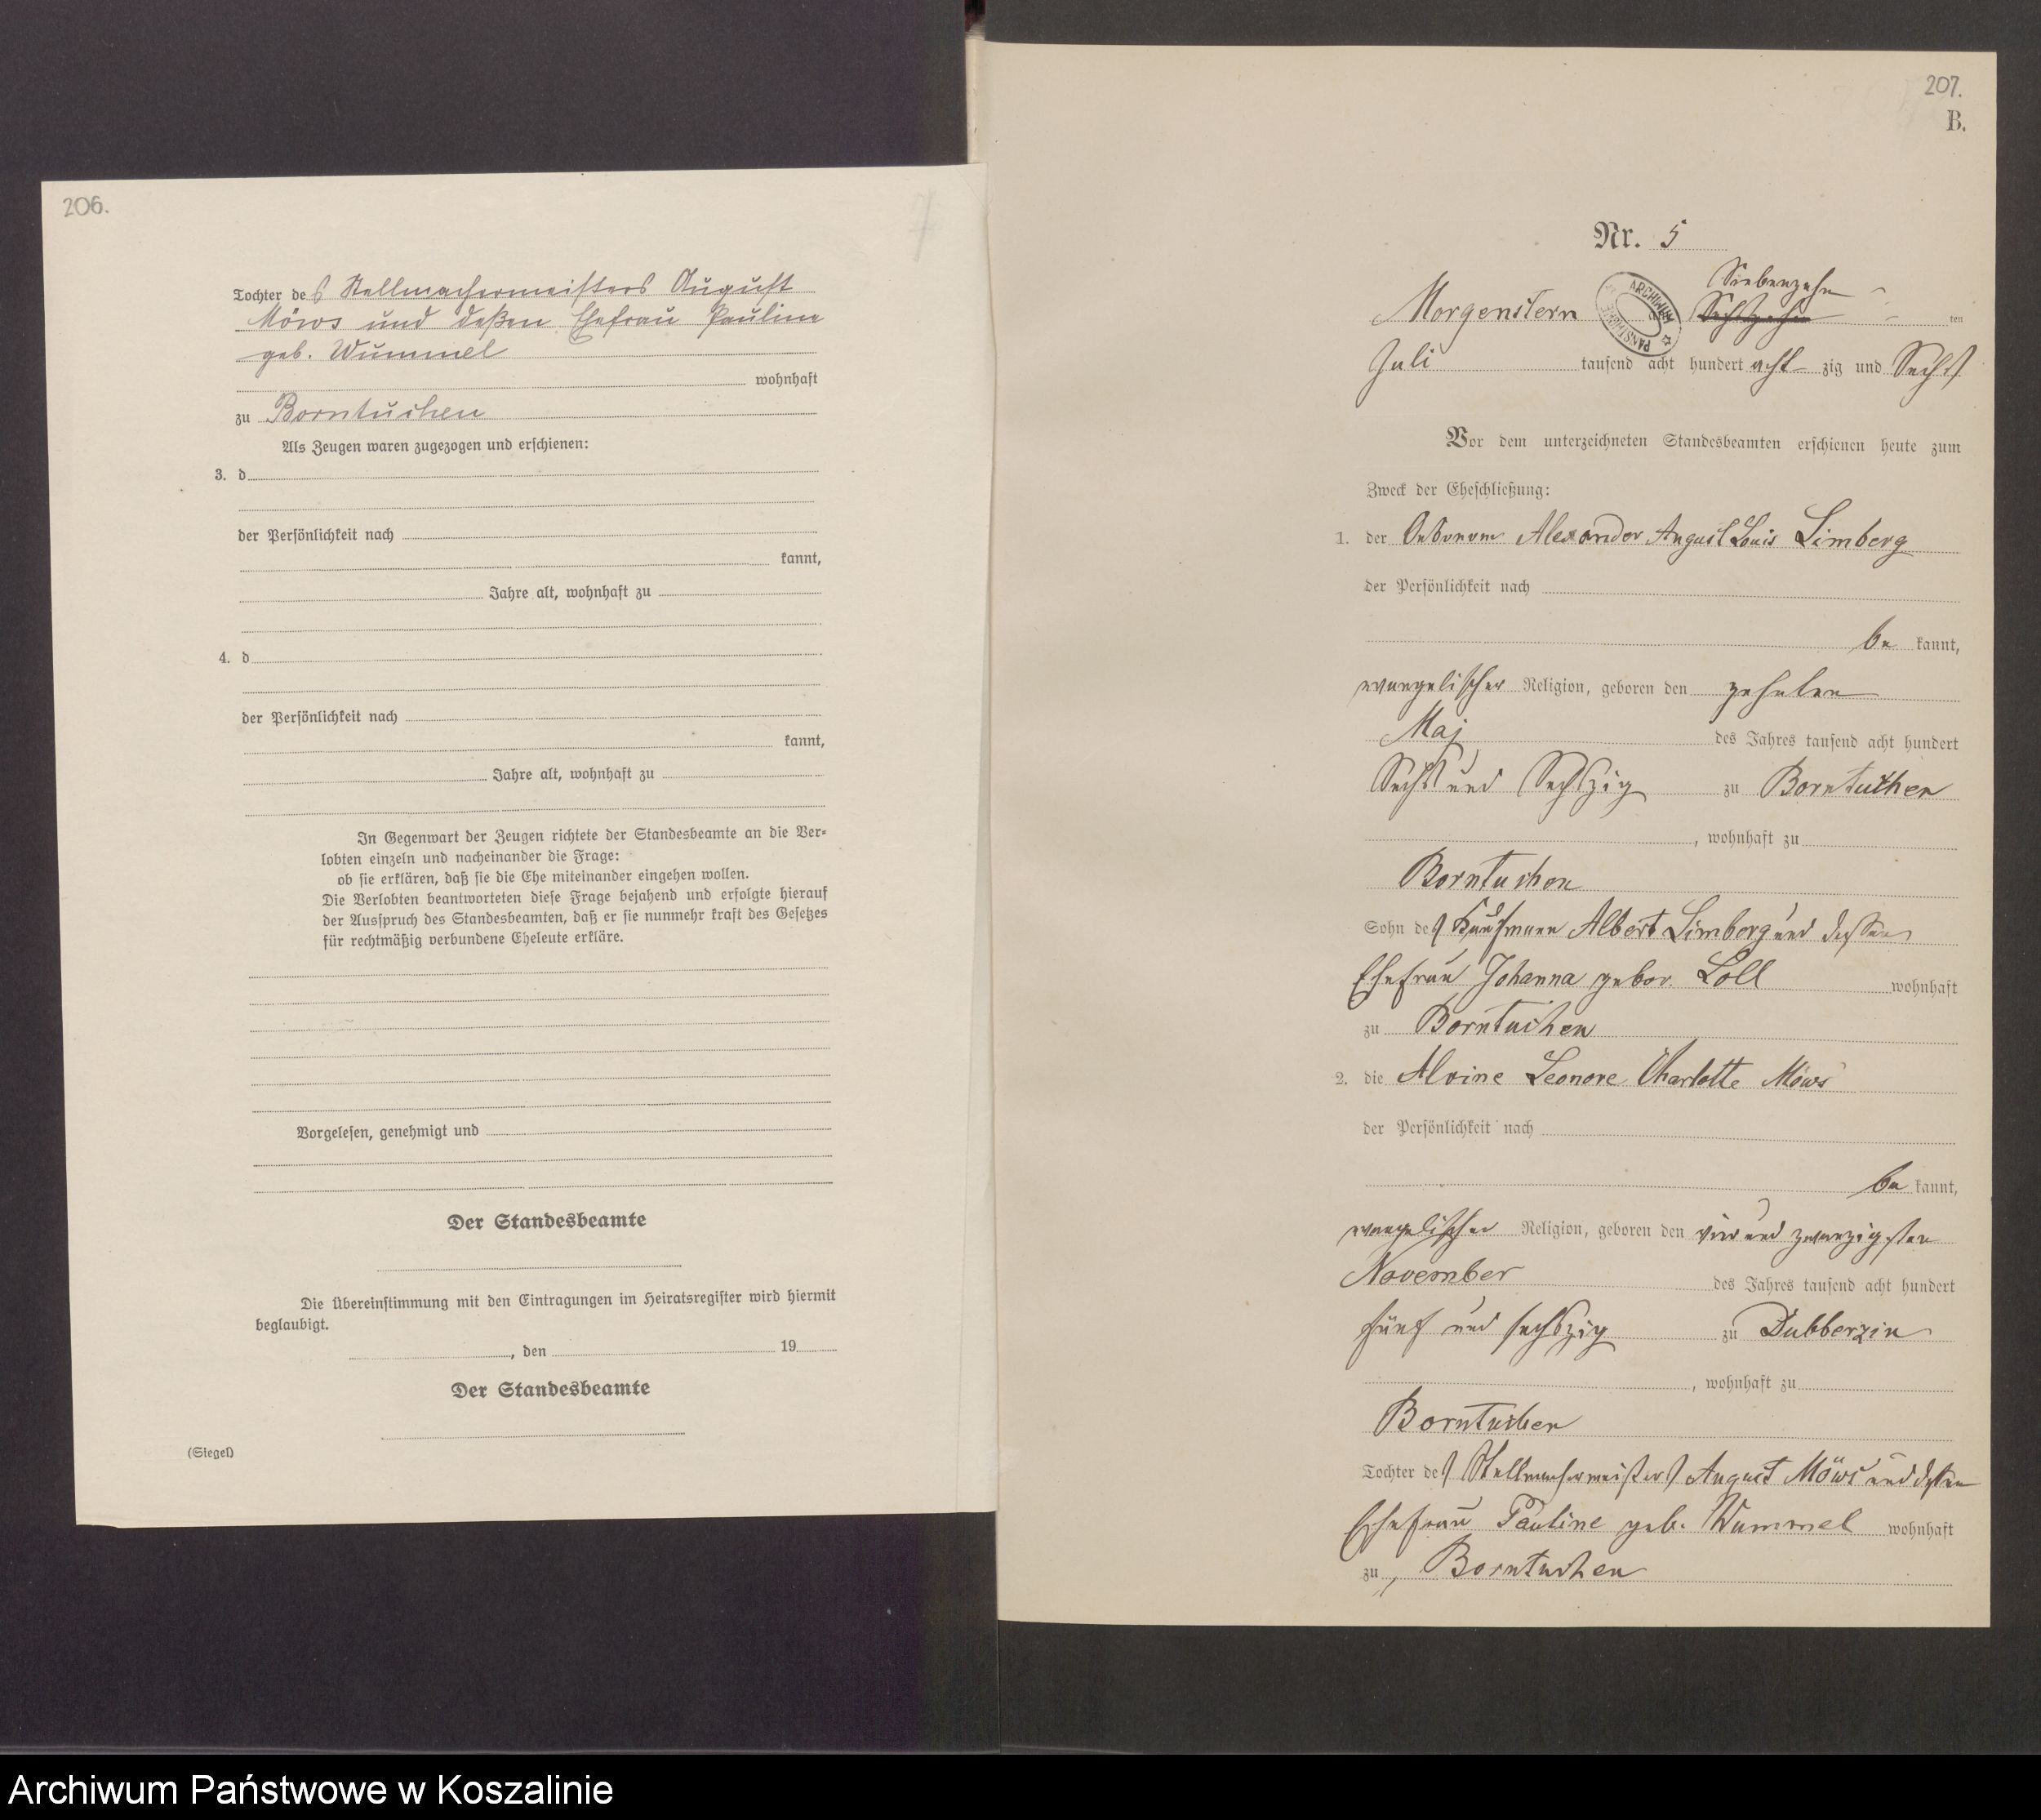 206.
7
Tochter des Stellmachermeisters August
Möws und deßen Ehefrau Pauline
geb. Wummel
wohnhaft
zu Borntuchen
Als Zeugen waren zugezogen und erschienen:
3. d
der Persönlichkeit nach
kannt,
Jahre alt, wohnhaft zu
4. d
der Persönlichkeit nach
kannt,
Jahre alt, wohnhaft zu
In Gegenwart der Zeugen richtete der Standesbeamte an die Ver-
lobten einzeln und nacheinander die Frage:
ob sie erklären, daß sie die Ehe miteinander eingehen wollen.
Die Verlobten beantworteten diese Frage bejahend und erfolgte hierauf
der Ausspruch des Standesbeamten, daß er sie nunmehr kraft des Gesetzes
für rechtmäßig verbundene Eheleute erkläre.
Vorgelesen, genehmigt und
Der Standesbeamte
Die Übereinstimmung mit den Eintragungen im Heiratsregister wird hiermit
beglaubigt.
, den 19
Der Standesbeamte
(Siegel)
207.
B.
Nr. 5
Siebenzehn
Morgenstern Sechszehn ten
ARCHIWUM PAŃSTWOWE
Juli tausend acht hundert acht zig und Sechs
Vor dem unterzeichneten Standesbeamten erschienen heute zum
Zweck der Eheschließung:
1. der Oekonom Alexander August Louis Limberg
der Persönlichkeit nach
be kannt,
evangelischer Religion, geboren den zehnten
Maj des Jahres tausend acht hundert
Sechs und Sechszig zu Borntuchen
, wohnhaft zu
Borntuchen
Sohn des Kaufmann Albert Limberg und dessen
Ehefrau Johanna gebor. Loll wohnhaft
zu Borntuchen
2. die Alvine Leonore Charlotte Möws
der Persönlichkeit nach
be kannt,
evangelischer Religion, geboren den vier und zwanzigsten
November des Jahres tausend acht hundert
fünf und sechszig zu Dubberzin
, wohnhaft zu
Borntuchen
Tochter des Stellmachermeisters August Möws und dessen
Ehefrau Pauline geb. Wummel wohnhaft
zu, Borntuchen
Archiwum Państwowe w Koszalinie